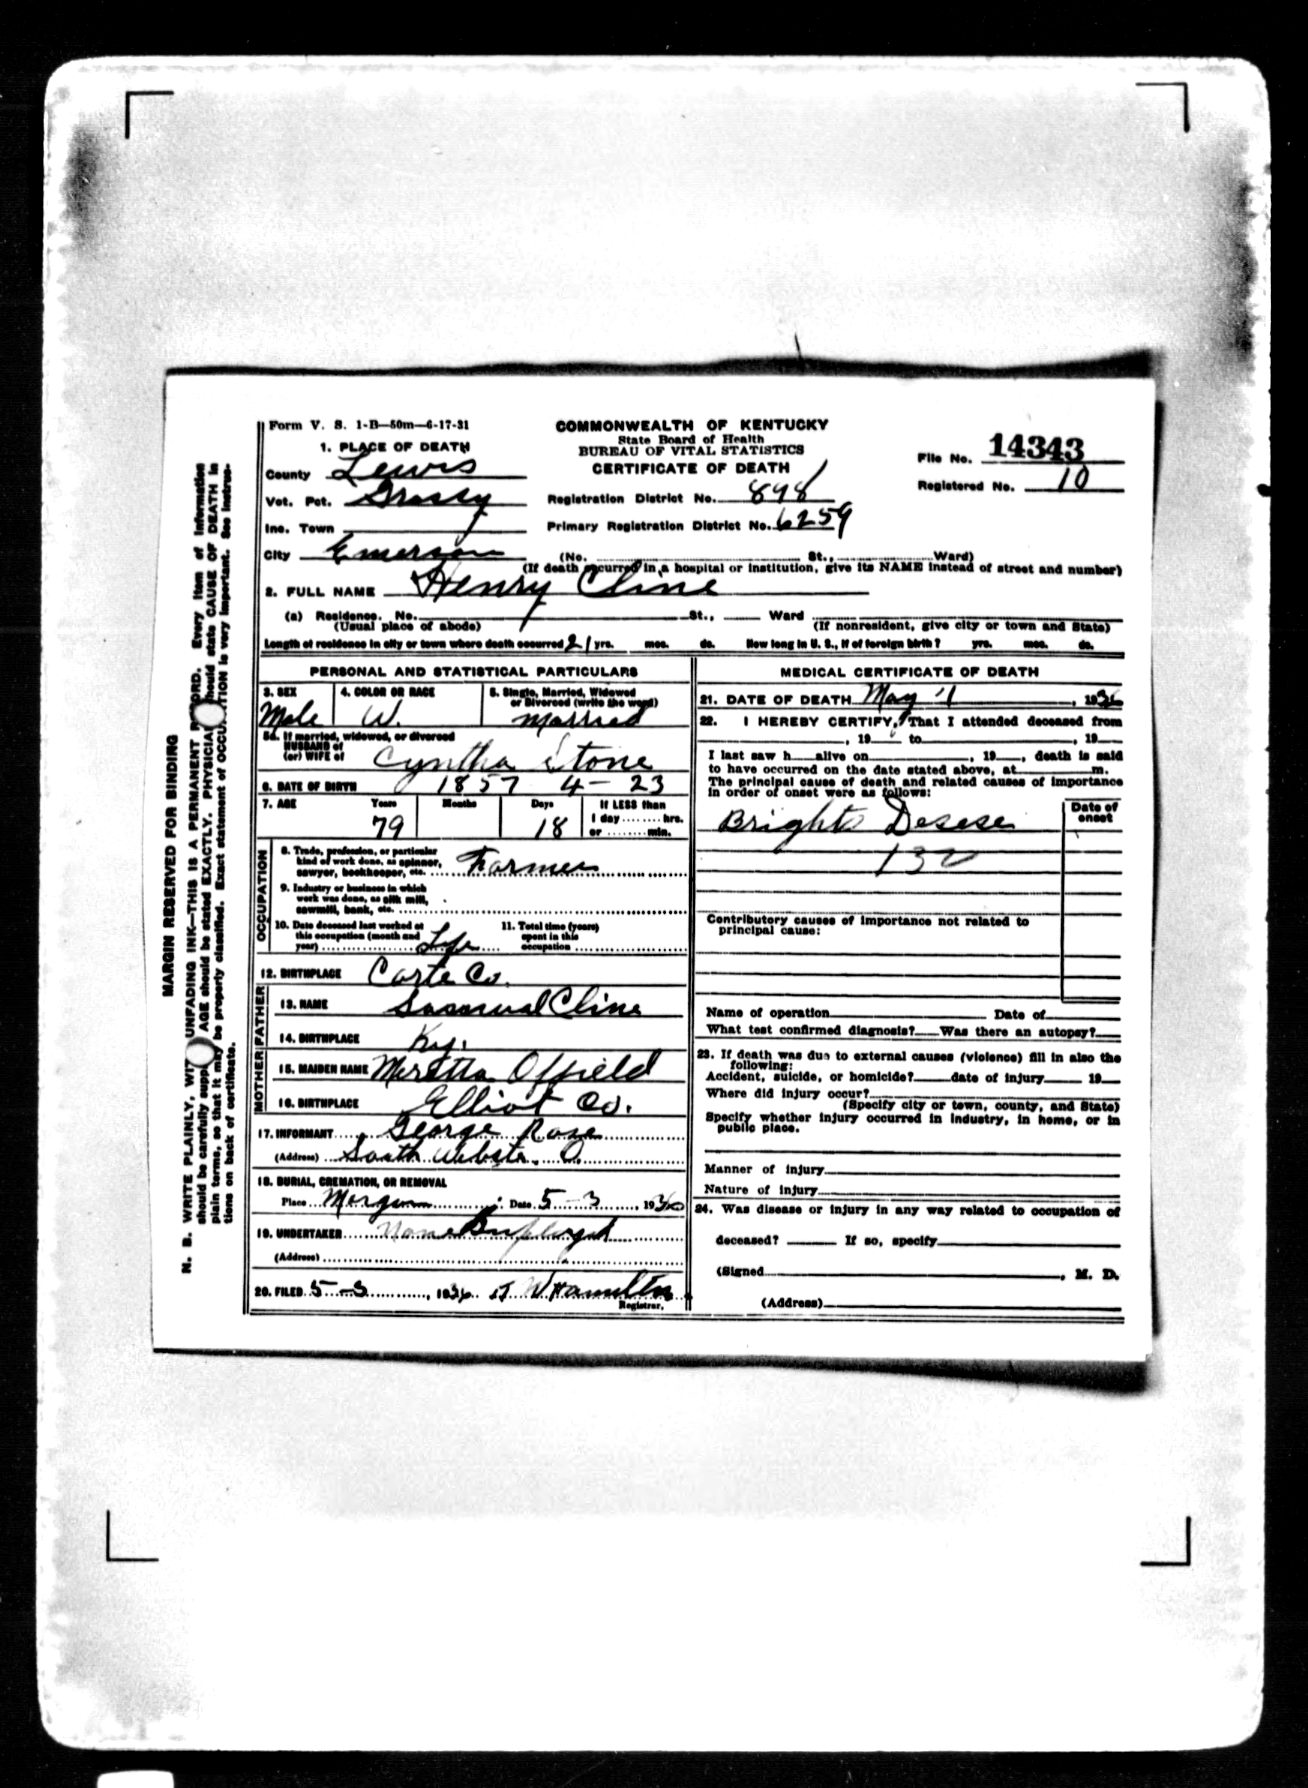 Form V. S. 1-B—50m—6-17-31
COMMONWEALTH OF KENTUCKY
State Board of Health
BUREAU OF VITAL STATISTICS
CERTIFICATE OF DEATH
File No. 14343
Registered No. 10
1. PLACE OF DEATH
County Lewis
Vot. Pct. Grassy
Registration District No. 898
Inc. Town
Primary Registration District No. 6259
City Emerson (No. St., Ward)
(If death occurred in a hospital or institution, give its NAME instead of street and number)
2. FULL NAME Henry Cline
(a) Residence. No. St., Ward
(Usual place of abode) (If nonresident, give city or town and State)
Length of residence in city or town where death occurred 21 yrs. mos. ds. How long in U. S., if of foreign birth? yrs. mos. ds.
PERSONAL AND STATISTICAL PARTICULARS
3. SEX 4. COLOR OR RACE 5. Single, Married, Widowed
or Divorced (write the word)
Male W. Married
5a. If married, widowed, or divorced
HUSBAND of
(or) WIFE of Cyntha Stone
6. DATE OF BIRTH 1857 4-23
7. AGE Years Months Days If LESS than
1 day hrs.
or min.
79 18
OCCUPATION
8. Trade, profession, or particular
kind of work done, as spinner,
sawyer, bookkeeper, etc. Farmer
9. Industry or business in which
work was done, as silk mill,
sawmill, bank, etc.
10. Date deceased last worked at
this occupation (month and
year) Life
11. Total time (years)
spent in this
occupation
12. BIRTHPLACE Carte Co.
FATHER
13. NAME Cline
14. BIRTHPLACE Ky.
MOTHER
15. MAIDEN NAME Meretta Offield
16. BIRTHPLACE Elliot Co.
17. INFORMANT George Rose
(Address) South Webster. O.
18. BURIAL, CREMATION, OR REMOVAL
Place Morgan Date 5-3, 1936
19. UNDERTAKER None
(Address)
20. FILED 5-3, 1936 W Hamilton
Registrar.
MEDICAL CERTIFICATE OF DEATH
21. DATE OF DEATH May 1, 1936
22. I HEREBY CERTIFY, That I attended deceased from
, 19 to , 19
I last saw h alive on , 19 , death is said
to have occurred on the date stated above, at m.
The principal cause of death and related causes of importance
in order of onset were as follows:
Date of
onset
Brights Desese
132
Contributory causes of importance not related to
principal cause:
Name of operation Date of
What test confirmed diagnosis? Was there an autopsy?
23. If death was due to external causes (violence) fill in also the
following:
Accident, suicide, or homicide? date of injury 19
Where did injury occur?
(Specify city or town, county, and State)
Specify whether injury occurred in industry, in home, or in
public place.
Manner of injury
Nature of injury
24. Was disease or injury in any way related to occupation of
deceased? If so, specify
(Signed , M. D.
(Address)
MARGIN RESERVED FOR BINDING
N. B. WRITE PLAINLY, WITH UNFADING INK—THIS IS A PERMANENT RECORD. Every item of information
should be carefully supplied. AGE should be stated EXACTLY. PHYSICIANS should state CAUSE OF DEATH in
plain terms, so that it may be properly classified. Exact statement of OCCUPATION is very important. See instruc-
tions on back of certificate.